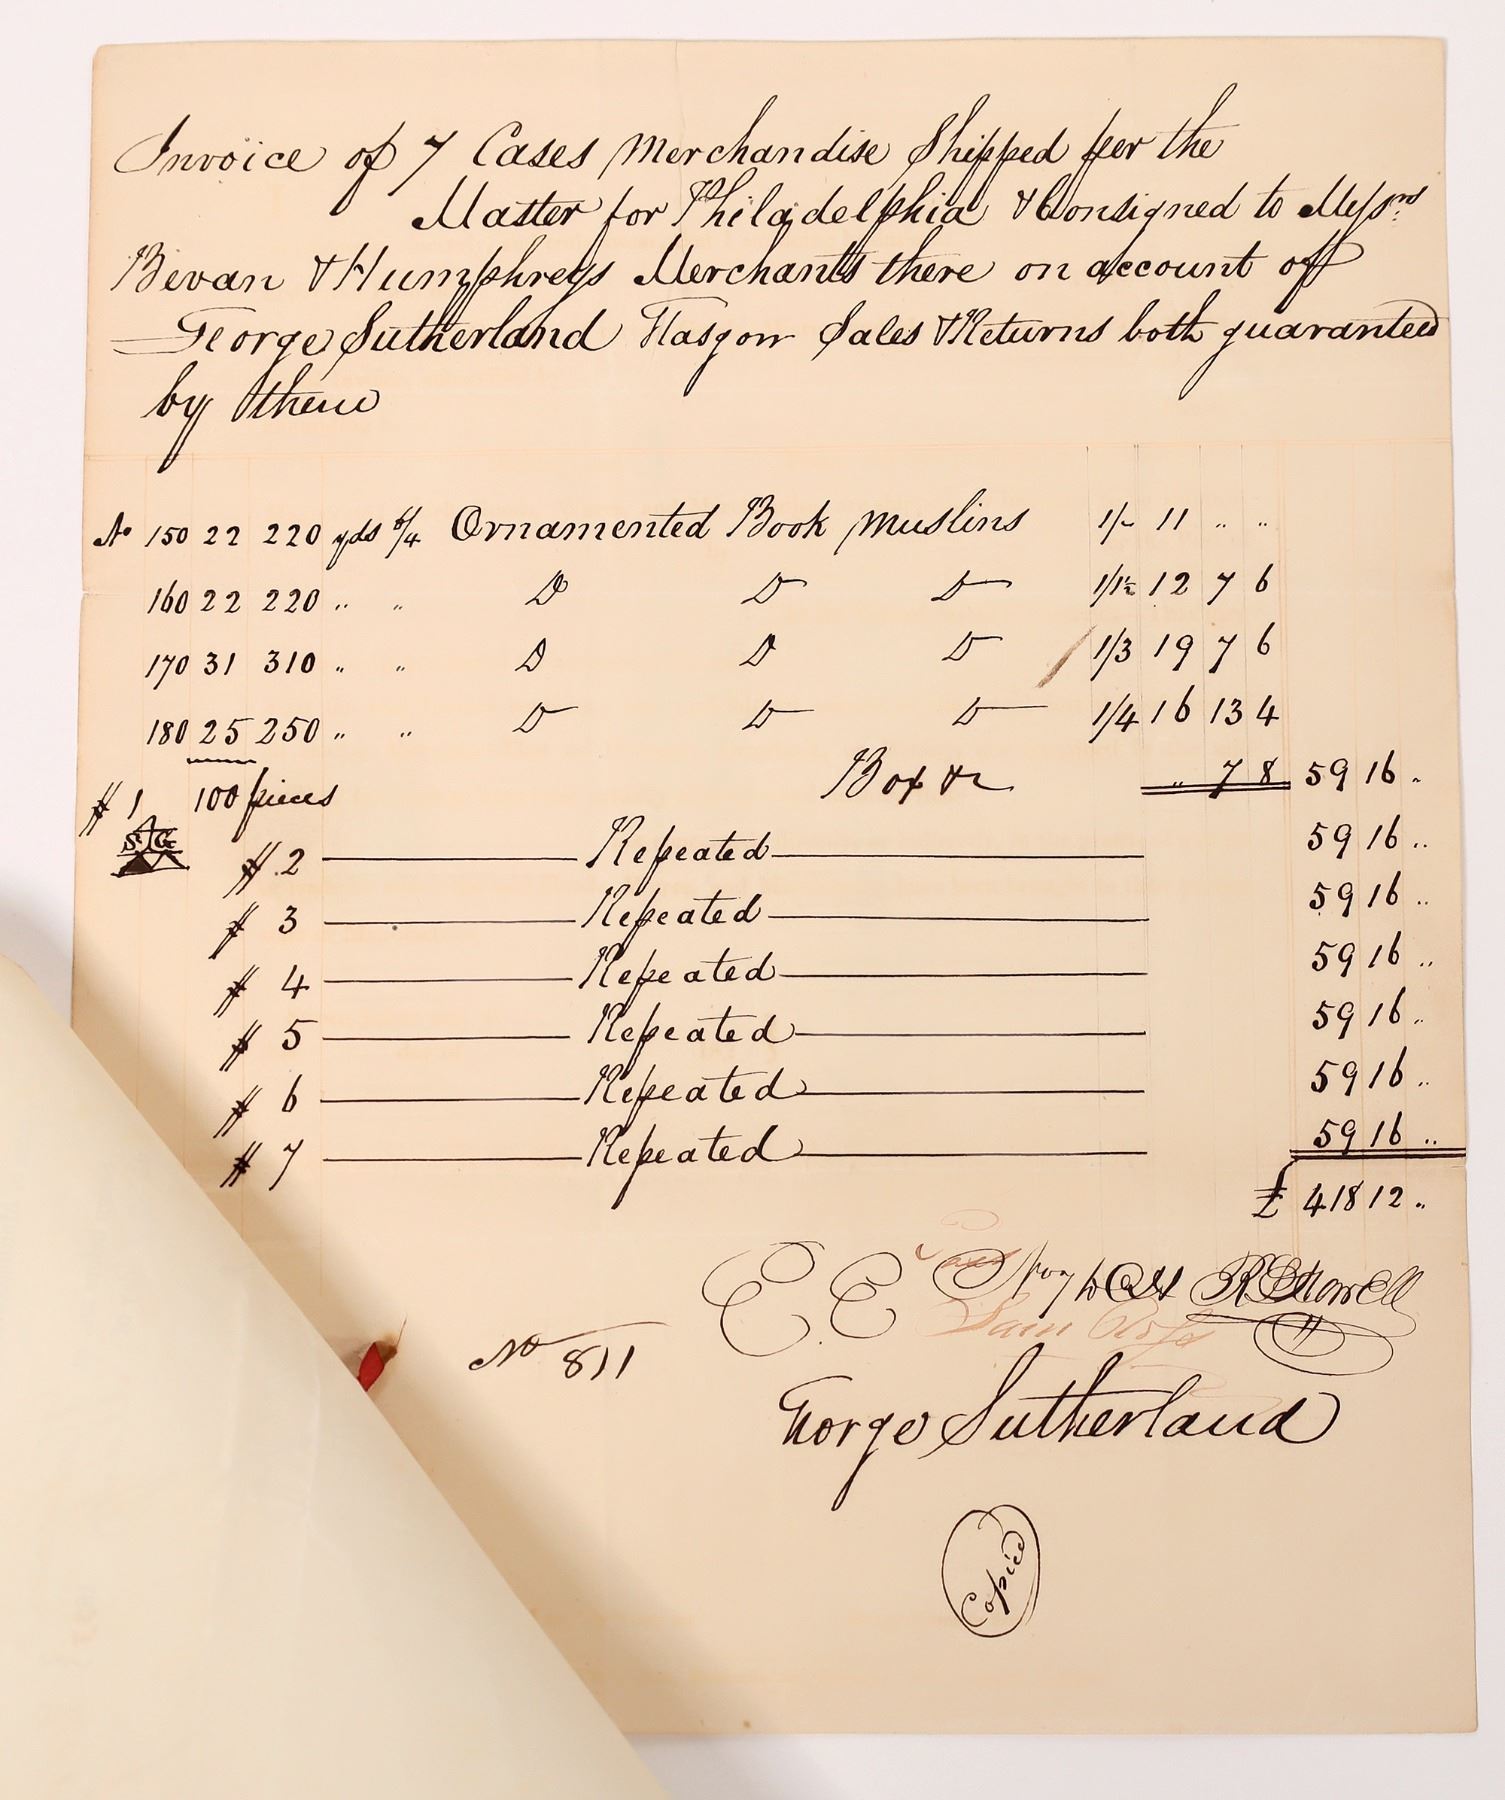 Invoice of 7 Cases Merchandise Shipped per the
Master for Philadelphia & Consigned to Messrs
Bevan & Humphreys Merchants there on account off
George Sutherland Glasgow Sales & Returns both guaranteed
by them
No 150 22 220 yds 6/4 Ornamented Book Muslins 1/- 11 .. ..
160 22 220 .. .. Do Do Do 1/1½ 12 7 6
170 31 310 .. .. Do Do Do 1/3 19 7 6
180 25 250 .. .. Do Do Do 1/4 16 13 4
# 1 100 pieces Box &c .. 7 8 59 16 ..
S G
# 2 Repeated 59 16 ..
# 3 Repeated 59 16 ..
# 4 Repeated 59 16 ..
# 5 Repeated 59 16 ..
# 6 Repeated 59 16 ..
# 7 Repeated 59 16 ..
£ 418 12 ..
E E
No 811
George Sutherland
Copied